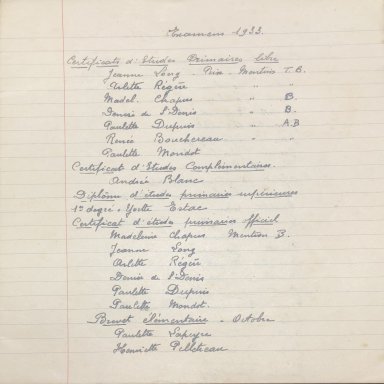 Examens 1933.
Certificats d'Etudes Primaires libre
Jeanne Long - Prix - Mention T.B.
Arlette Régère "
Madel. Chapus " B.
Denise de St Denis " B.
Paulette Dupuis " A.B
Renée Bouchereau "
Paulette Mondot
Certificat d'Etudes Complémentaires.
Andrée Blanc
Diplôme d'études primaires supérieures
1er degré : Yvette
Certificat d'études primaires officiel
Madeleine Chapus Mention B.
Jeanne Long
Arlette Régère
Denise de St Denis
Paulette Dupuis
Paulette Mondot.
Brevet élémentaire - Octobre
Paulette Lapeyre
Henriette Pelleteau